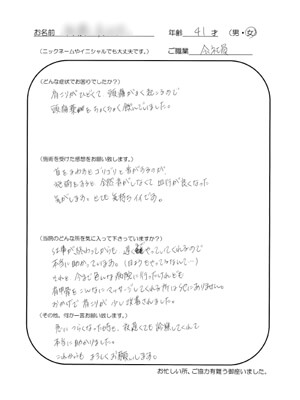 お名前
年齢 41才 (男・女)
(ニックネームやイニシャルでも大丈夫です。)
ご職業 会社員
(どんな症状でお困りでしたか?)
肩こりがひどくて 頭痛がよく起こるので
頭痛薬をちょくちょく飲んでいました。
(施術を受けた感想をお願い致します。)
首をまわすとゴリゴリと音がするのが、
施術をすると全然音がしなくて 血行が良くなった
気がします。とても 気持ちイイです。
(当院のどんな所を気に入って下さっていますか?)
仕事が終わってからも 遅くまでやってくれるので
本当に助かっています。
それと、今まで色んな病院に行ったけれども
肩甲骨をこんなにマッサージしてくれる所はうちにありません。
おかげで 肩こりが 少し改善されました。
(その他、何か一言お願い致します。)
急につらくなった時も、夜遅くても 診察してくれて
本当に助かりました。
これからも よろしくお願いします。
お忙しい所、ご協力有難う御座いました。